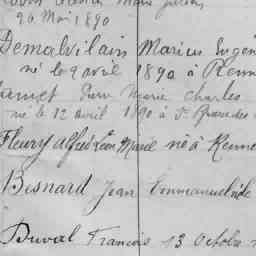 26 Mai 1890
Demalvilain Marius Eugèn
né le 9 avril 1890 à Renn
Marie Charles
né le 12 avril 1890 à St
Fleury Alfred Léon Marcel né à Renne
Besnard Jean Emmanuel né le
Duval Francois 13 Octobre